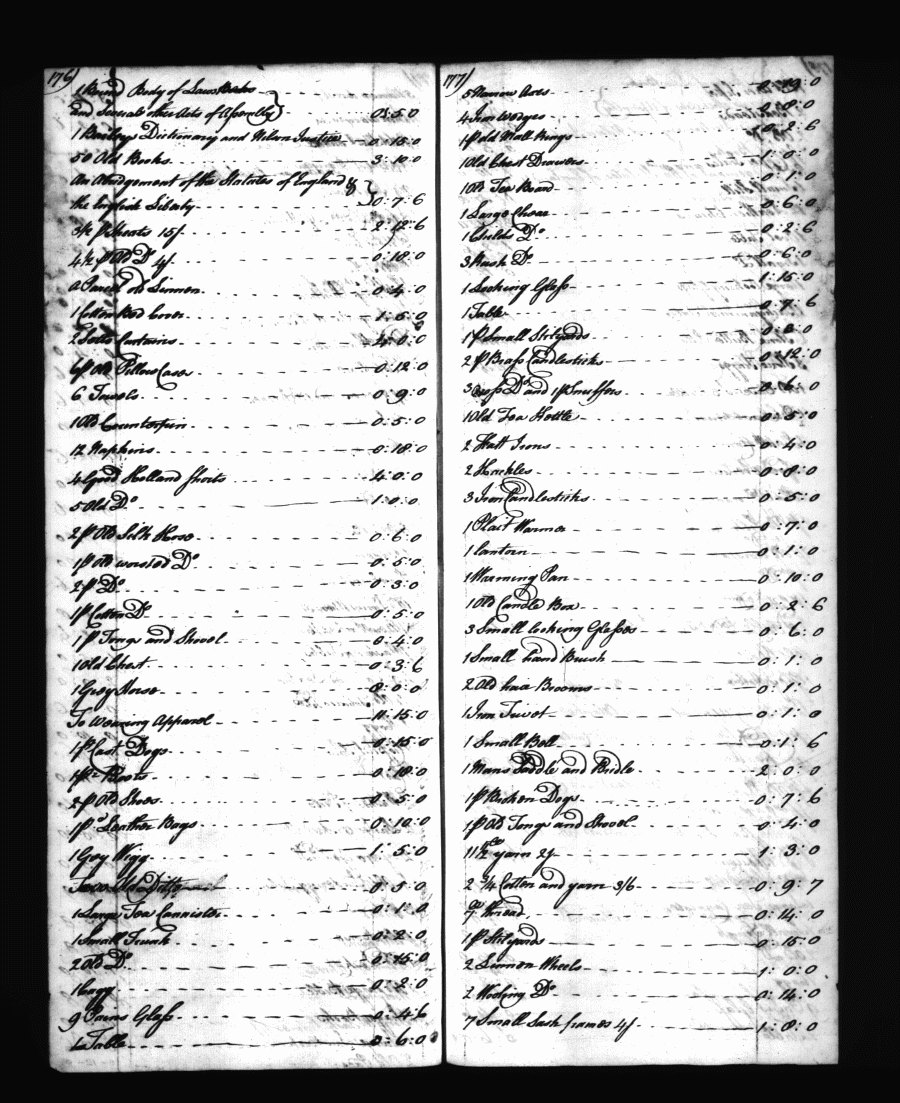 176)
1 Bound Body of Laws
and Several other Acts of Assembly) 0:5:0
1 Baileys Dictionary and Nelson Justice 0:15:0
50 Old Books 3:10:0
An Abridgement of the Statutes of England &
the English Liberty 0:7:6
3½ p Sheets 15/ 2:12:6
4½ p Old Do 4/ 0:18:0
a Parcel old Linnon 0:4:0
1 Cotton Bed Cover 1:5:0
2 Curtains 4:0:0
6 p Old Pillow Case 0:12:0
6 Towels 0:9:0
1 Old Counterpin 0:5:0
12 Napkins 0:18:0
4 Good Holland Shirts 4:0:0
5 Old Do 1:0:0
2 p Old Silk Hose 0:6:0
1 p Old worsted Do 0:5:0
2 p Do 0:3:0
1 p Cotton Do 0:5:0
1 p Tongs and Shovel 0:4:0
1 Old Chest 0:3:6
1 Grey Horse 8:0:0
To Wearing Apparel 11:15:0
1 p Cast Dogs 0:15:0
1 pr Boots 0:18:0
2 p Old Shoes 0:5:0
1 p Leather Bags 0:10:0
1 Grey Wigg 1:5:0
Two Old Ditto 0:5:0
1 Large Tea Cannister 0:1:0
1 Small Trunk 0:2:0
2 Old Do 0:15:0
1 Cagg 0:2:0
9 Pains Glass 0:4:6
1 Table 0:6:0
177)
5 Narrow Axes 0:19:0
4 Iron Wedges 0:8:0
1 p old Mall Rings 0:2:6
1 Old Chest Drawers 1:0:0
1 Old Tea Board 0:1:0
1 Large Chear 0:6:0
1 Childs Do 0:2:6
3 Rush Do 0:6:0
1 Looking Glass 1:15:0
1 Table 0:7:6
1 p Small Stilyards
2 p Brass Candlesticks 0:12:0
3 Do and 1 p Snuffers 0:6:0
1 Old Tea Kettle 0:5:0
2 Flatt Irons 0:4:0
2 Hackles 0:8:0
3 Iron Candlesticks 0:5:0
1 Plait Warmer 0:7:0
1 lantorn 0:1:0
1 Warming Pan 0:10:0
1 Old Candle Box 0:2:6
3 Small looking Glasses 0:6:0
1 Small hand Brush 0:1:0
2 Old hair Brooms 0:1:0
1 Iron Trivet 0:1:0
1 Small Bell 0:1:6
1 Mans Saddle and Bridle 2:0:0
1 p Broken Dogs 0:7:6
1 p Old Tongs and Shovel 0:4:0
11½ yarn 2/ 1:3:0
2¾ Cotton and yarn 3/6 0:9:7
7 Thread 0:14:0
1 p Stilyards 0:15:0
2 Linnon Wheels 1:0:0
2 Wooling Do 0:14:0
7 Small Sash frames 4/ 1:8:0